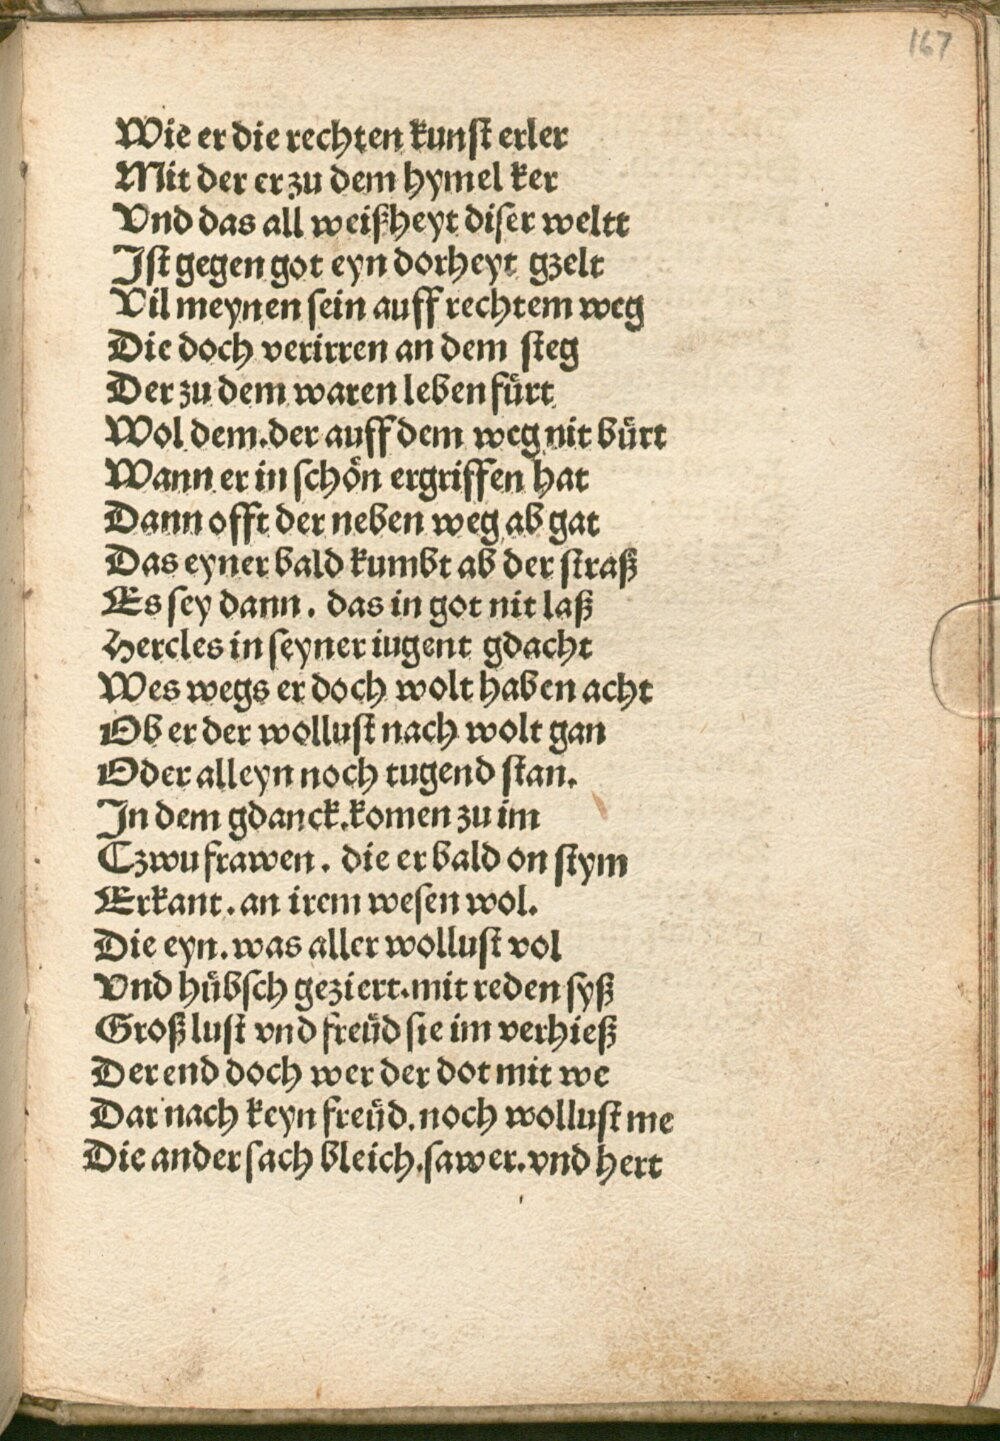 167
Wie er die rechten kunst erler
Mit der er zu dem hymel ker
Vnd das all weißheyt diser weltt
Jst gegen got eyn dorheyt gzelt
Vil meynen sein auff rechtem weg
Die doch verirren an dem steg
Der zu dem waren leben fürt
Wol dem. der auff dem weg nit bürt
Wann er in schön ergriffen hat
Dann offt der neben weg ab gat
Das eyner bald kumbt ab der straß
Es sey dann. das in got nit laß
Hercles in seyner iugent gdacht
Wes wegs er doch wolt haben acht
Ob er der wollust nach wolt gan
Oder alleyn noch tugend stan.
Jn dem gdanck. komen zu im
Czwu frawen. die er bald on stym
Erkant. an irem wesen wol.
Die eyn. was aller wollust vol
Vnd hübsch geziert. mit reden syß
Groß lust vnd freüd sie im verhieß
Der end doch wer der dot mit we
Dar nach keyn freüd. noch wollust me
Die ander sach bleich. sawer. vnd hert